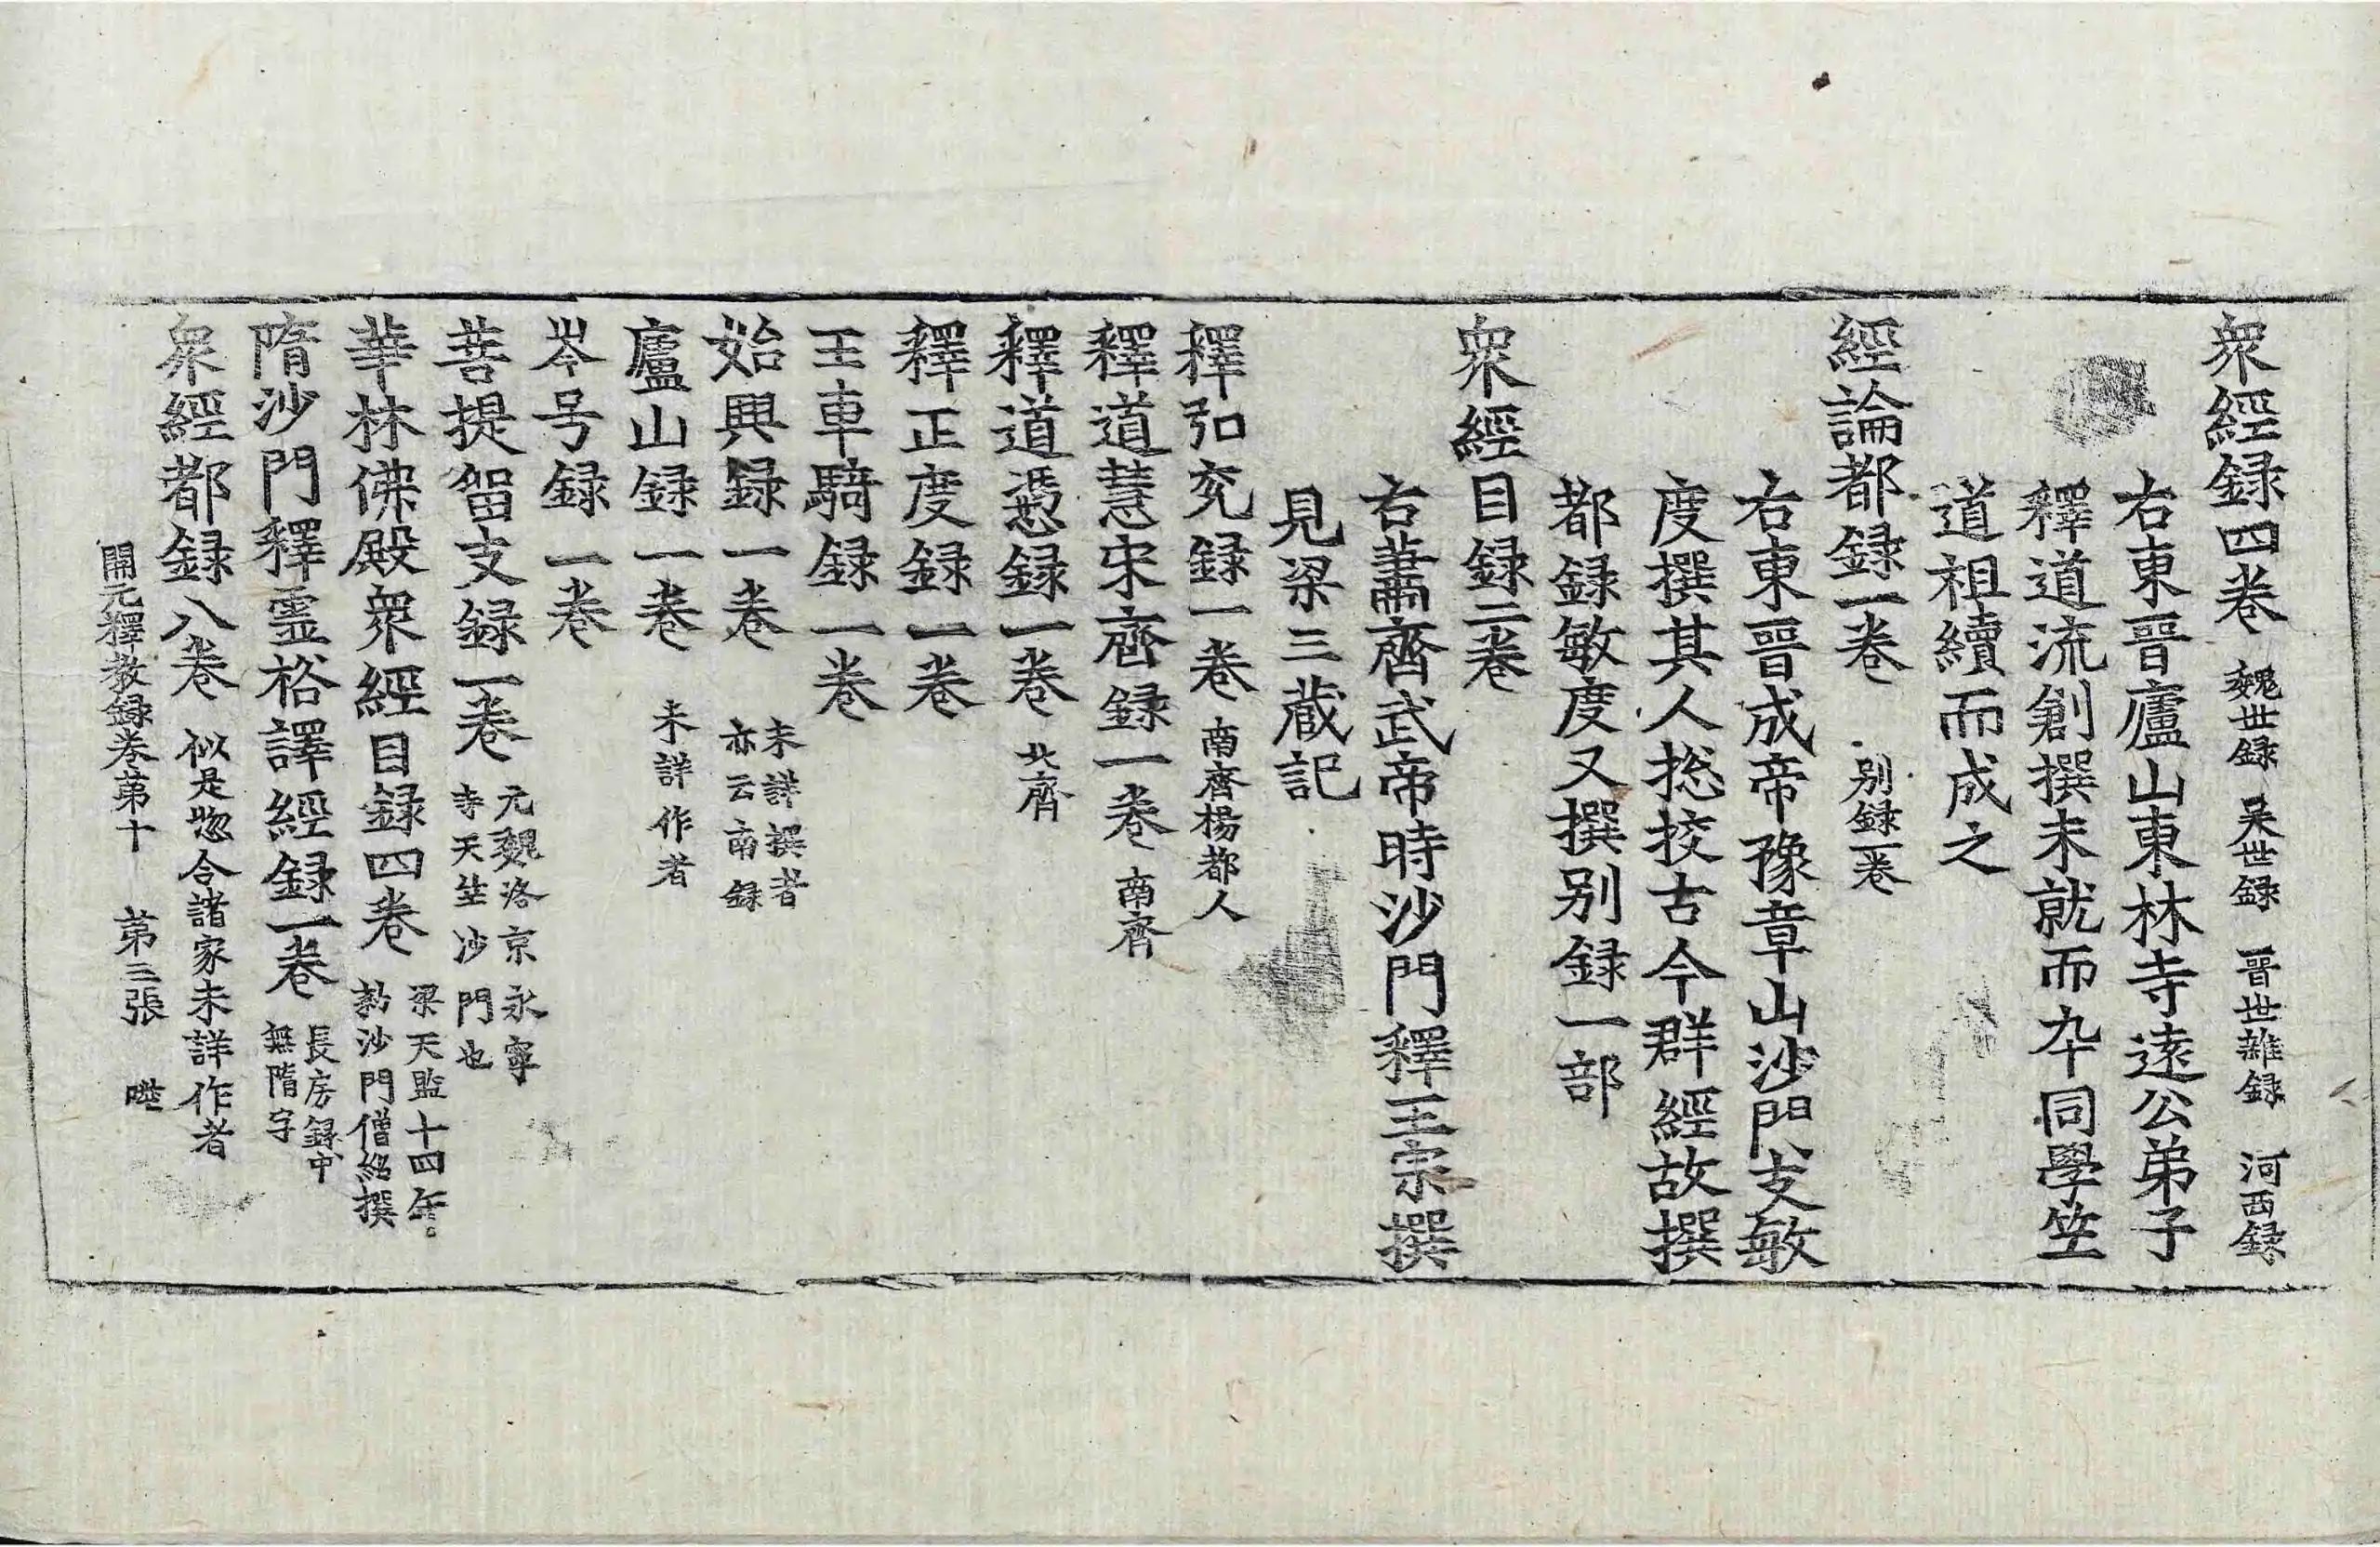 衆經録四卷 魏世録 吴世録 晉世雜録 河西録
右東晉廬山東林寺遠公弟子
釋道流創撰未就而卒同學竺
道祖續而成之
經論都録一卷 别録一卷
右東晉成帝豫章山沙門支敏
度撰其人捴挍古今群經故撰
都録敏度又撰别録一部
衆經目録二卷
右蕭齊武帝時沙門釋王宗撰
見梁三蔵記
釋弘充録一卷 南齊楊都人
釋道慧宋齊録一卷 南齊
釋道憑録一卷 北齊
釋正度録一卷
王車騎録一卷
始興録一卷 未詳撰者 亦云南録
廬山録一卷 未詳作者
岑号録一卷
菩提留支録一卷 元魏洛京永寧 寺天竺沙門也
華林佛殿衆經目録四卷 梁天監十四年 勑沙門僧紹撰
隋沙門釋霊裕譯經録一卷 長房録中 無隋字
衆經都録八卷 似是惣合諸家未詳作者
開元釋教録卷苐十 苐三張 陞